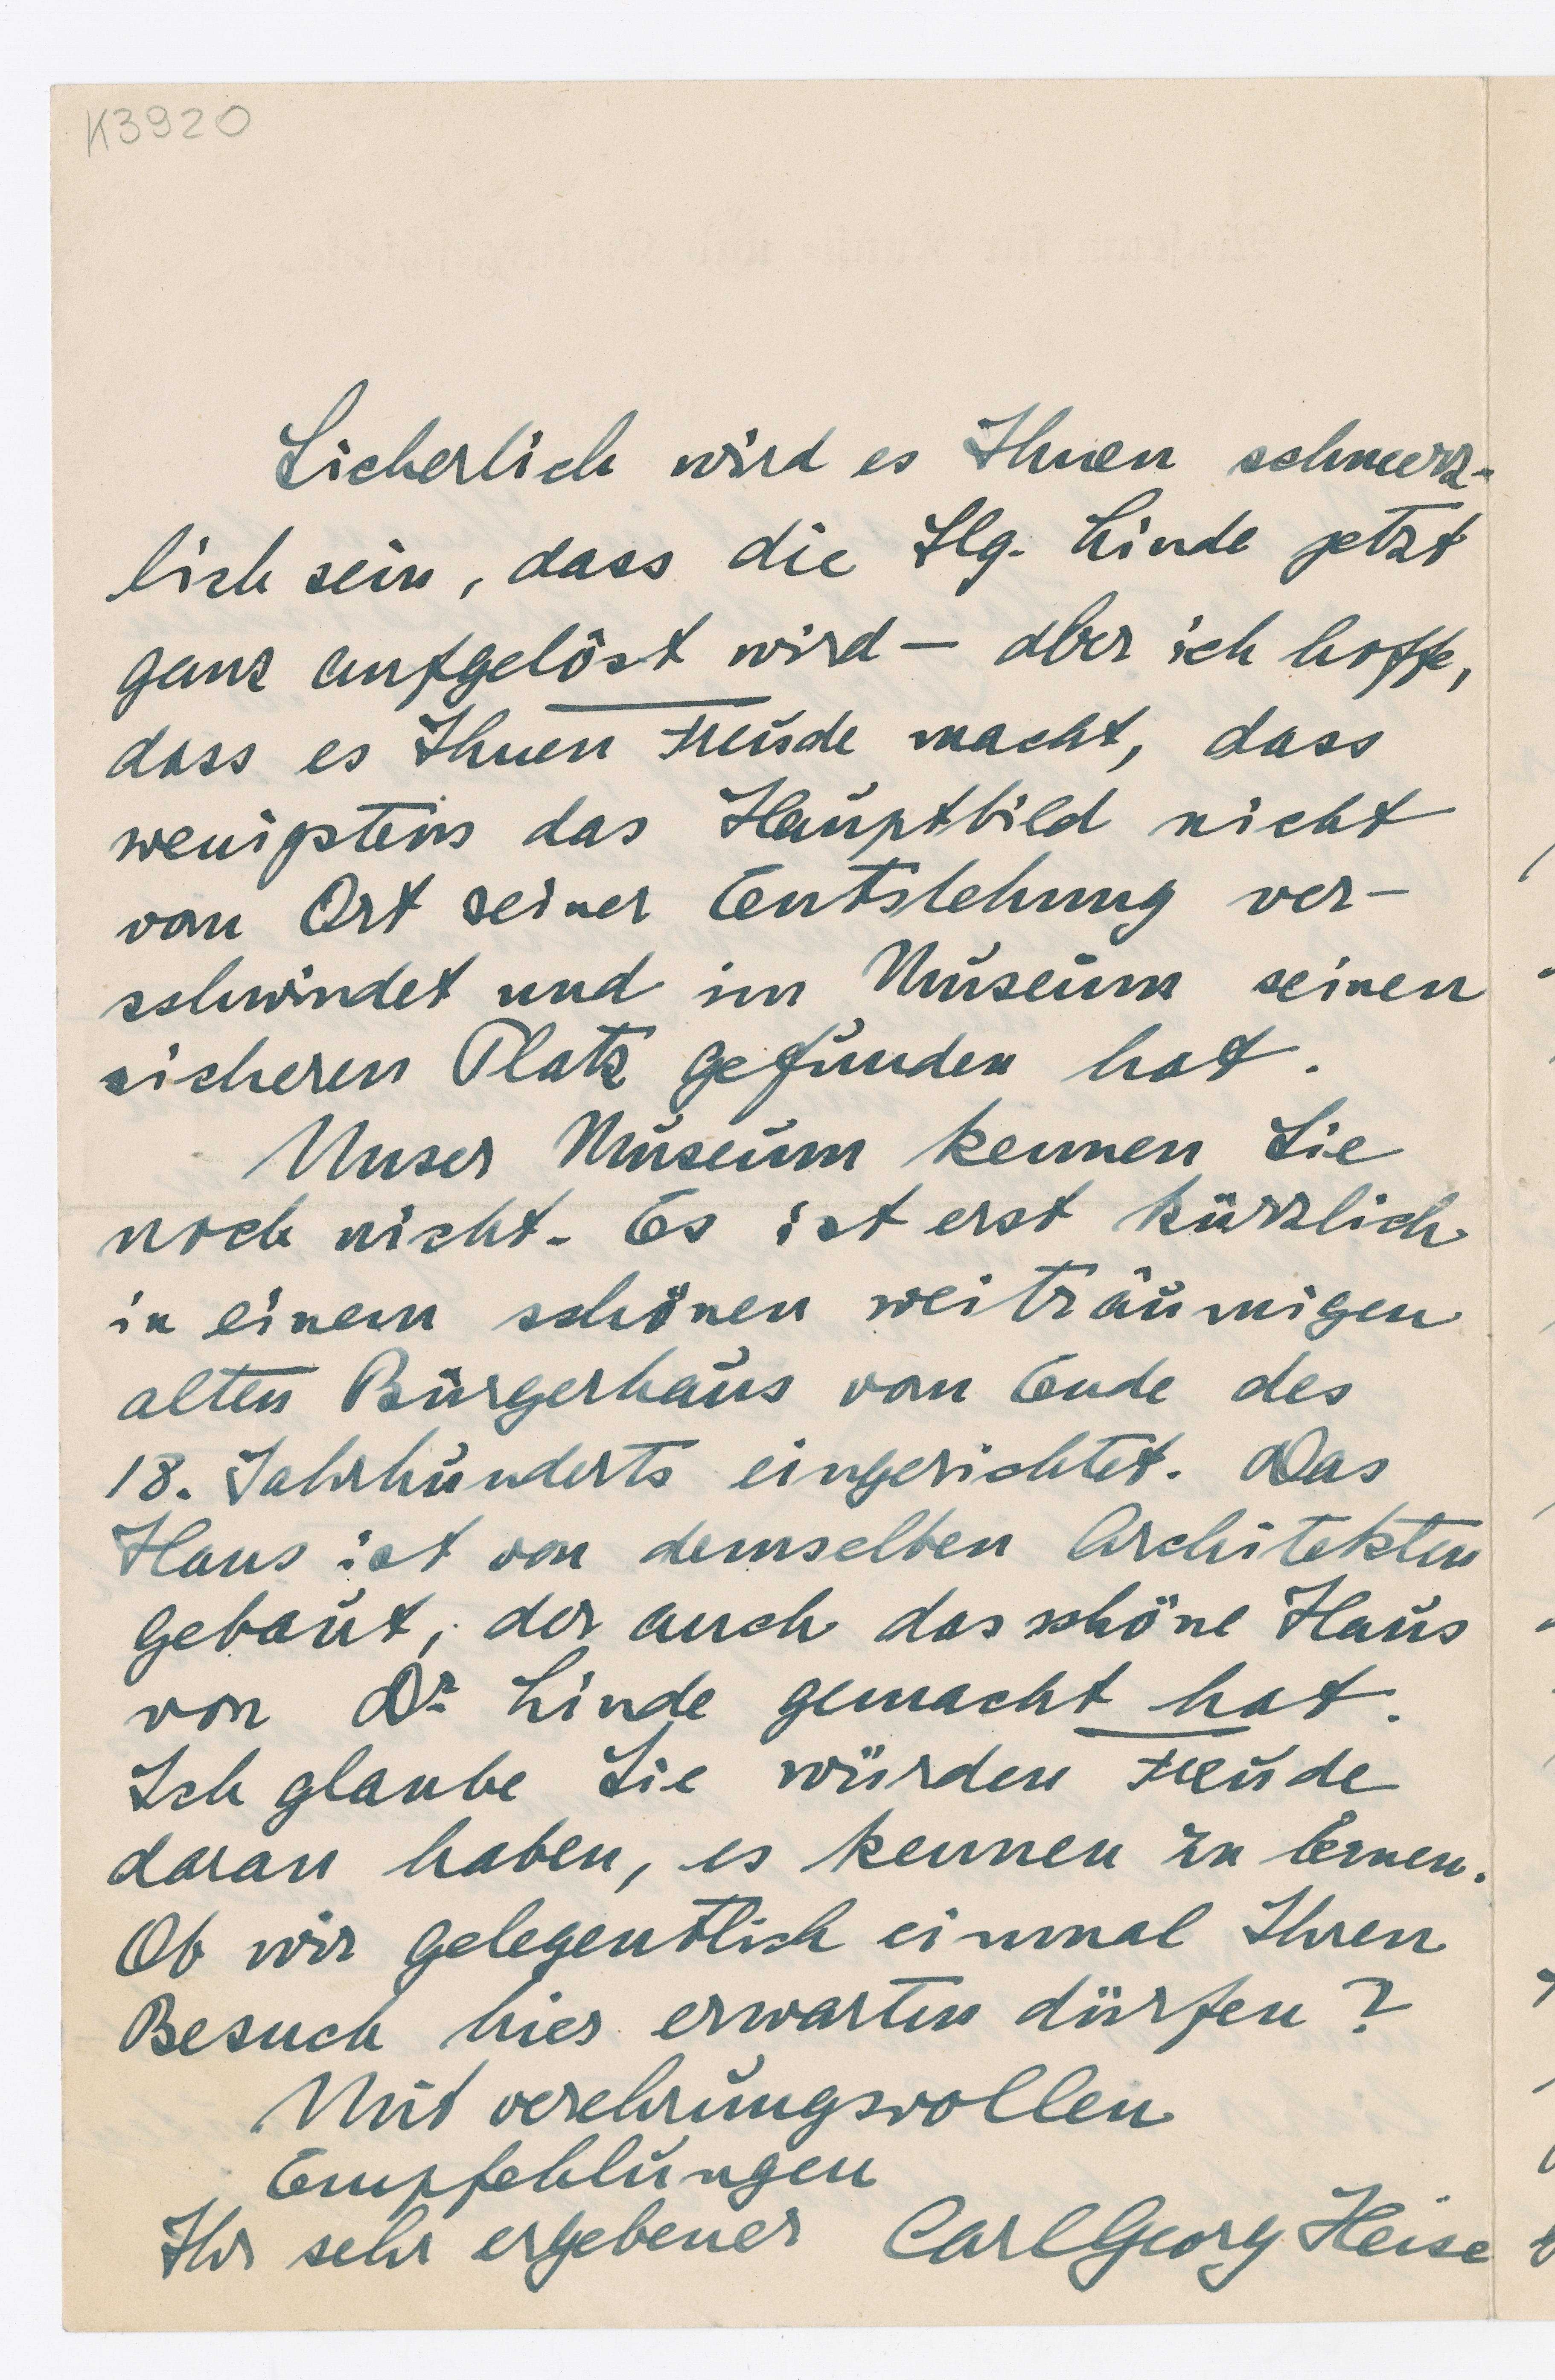 K3920
Sicherlich wird es Ihnen schmerz-
lich sein, dass die Slg. Linde jetzt
ganz aufgelöst wird — aber ich hoffe,
dass es Ihnen Freude macht, dass
wenigstens das Hauptbild nicht
vom Ort seiner Entstehung ver-
schwindet und im Museum seinen
sicheren Platz gefunden hat.
Unser Museum kennen Sie
noch nicht. Es ist erst kürzlich
in einem schönen weiträumigen
alten Bürgerhaus vom Ende des
18. Jahrhunderts eingerichtet. Das
Haus ist von demselben Architekten
gebaut, der auch das schöne Haus
von Dr Linde gemacht hat.
Ich glaube Sie würden Freude
daran haben, es kennen zu lernen.
Ob wir gelegentlich einmal Ihren
Besuch hier erwarten dürfen?
Mit verehrungsvollen
Empfehlungen
Ihr sehr ergebener Carl Georg Heise